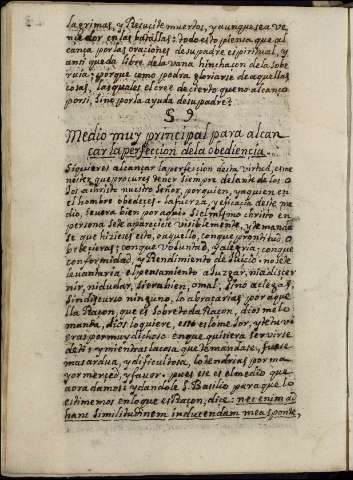 lagrimas, y Resucite muertos, y aunque sea ve
nzedor en las batallas: todo esto piensa que al
cança por las oraciones de su padre espiritual, y
anti queda libre de la vana hinchacon de la sobe
ruia; porque como podra gloriarse de aquellas
cosas, las quales el cree de cierto que no alcanço
por si, sino por la ayuda de su padre?
§ 9.
Medio muy principal para alcan
çar la perfeccion de la obediencia.
Si quieres alcançar la perfeccion desta virtud, es me
nester, que procures tener siempre delante de los
ojos a christo nuestro Señor, por quien, y a quien en
el hombre obedeces. la fuerza, y eficacia deste me
dio, se vera bien por aqui. Si el mismo christo en
persona se te apareciese visiblemente, y te manda
se que hiziesses esto, o aquello, con que prontitud o
bedecieras; con que voluntad, y alegria; con que
conformidad, y Rendimiento de Juicio. no se te
levantaria el pensamiento a Juzgar, ni a discer
nir, ni dudar, si era bien, o mal, sino a ciegas,
sin discurso ninguno, lo abraçarias por aque
lla Raçon, que es sobre toda Raçon, dios me lo
manda, dios lo quiere, esto es lo mejor, y te tuvi
eras por muy dichoso en que quisiera servirse
de ti; y mientras la cosa que te mandase, fuese
mas ardua, y dificultosa, lo tendrias por ma
yor merced, y favor. pues ese es el medio que
aora damos; y dandole S. Basilio para que lo
estimemos en lo que es Raçon, dice: nec enim ad
hanc similitudinem inducendam mea sponte,